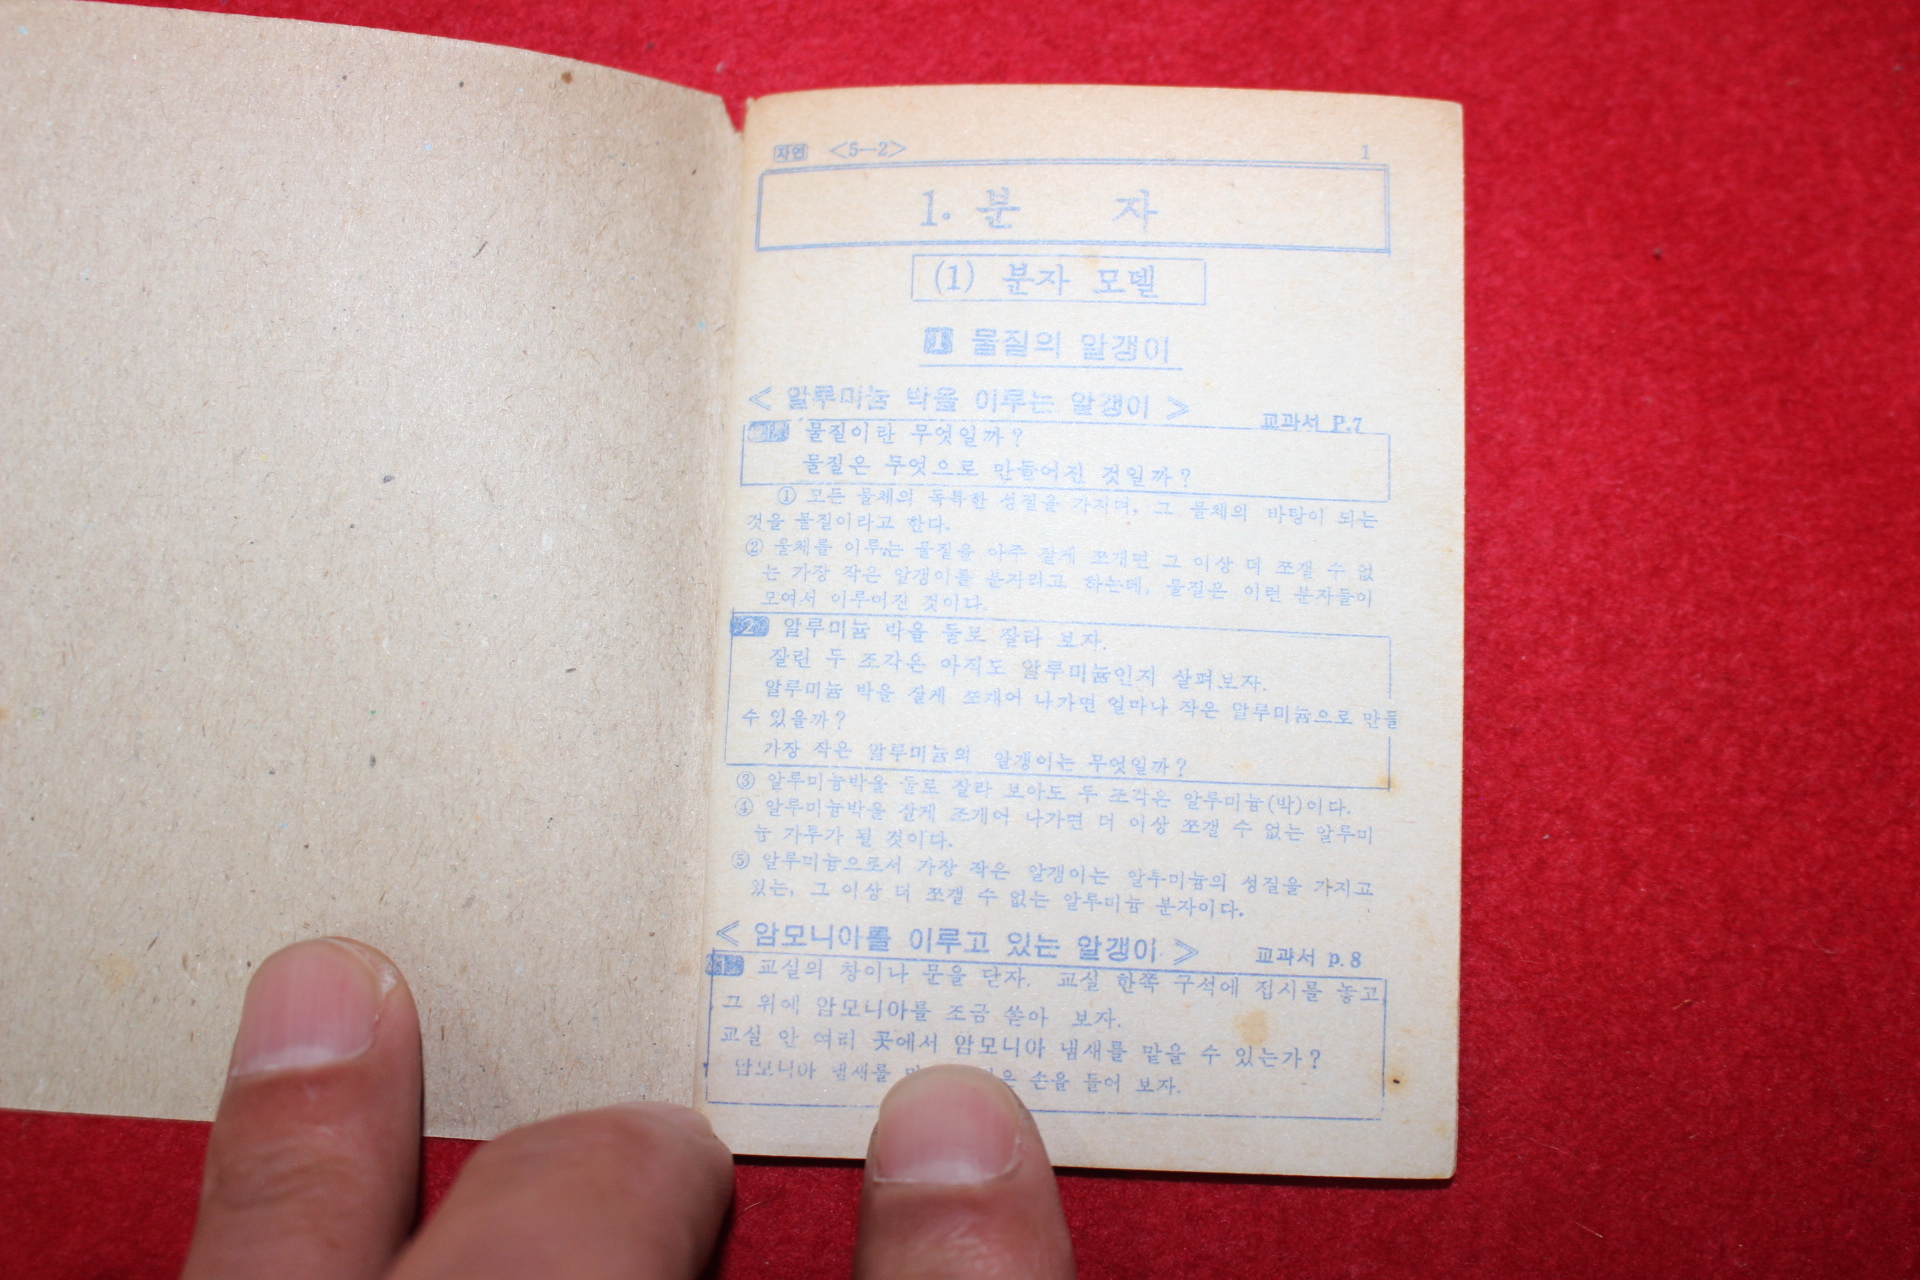 자연 <5-2> 1
1. 분 자
(1) 분자 모델
1 물질의 알갱이
< 알루미늄 박을 이루는 알갱이 >
교과서 P.7
물질이란 무엇일까?
물질은 무엇으로 만들어진 것일까?
① 모든 물체의 독특한 성질을 가지며, 그 물체의 바탕이 되는
것을 물질이라고 한다.
② 물체를 이루는 물질을 아주 잘게 쪼개면 그 이상 더 쪼갤 수 없
는 가장 작은 알갱이를 분자라고 하는데, 물질은 이런 분자들이
모여서 이루어진 것이다.
2 알루미늄 박을 둘로 잘라 보자.
잘린 두 조각은 아직도 알루미늄인지 살펴보자.
알루미늄 박을 잘게 쪼개어 나가면 얼마나 작은 알루미늄으로 만들
수 있을까?
가장 작은 알루미늄의 알갱이는 무엇일까?
③ 알루미늄박을 둘로 잘라 보아도 두 조각은 알루미늄(박)이다.
④ 알루미늄박을 잘게 조개어 나가면 더 이상 쪼갤 수 없는 알루미
늄 가루가 될 것이다.
⑤ 알루미늄으로서 가장 작은 알갱이는 알루미늄의 성질을 가지고
있는, 그 이상 더 쪼갤 수 없는 알루미늄 분자이다.
< 암모니아를 이루고 있는 알갱이 > 교과서 p.8
교실의 창이나 문을 닫자. 교실 한쪽 구석에 접시를 놓고
그 위에 암모니아를 조금 쏟아 보자.
교실 안 여러 곳에서 암모니아 냄새를 맡을 수 있는가?
암모니아 냄새를 손을 들어 보자.